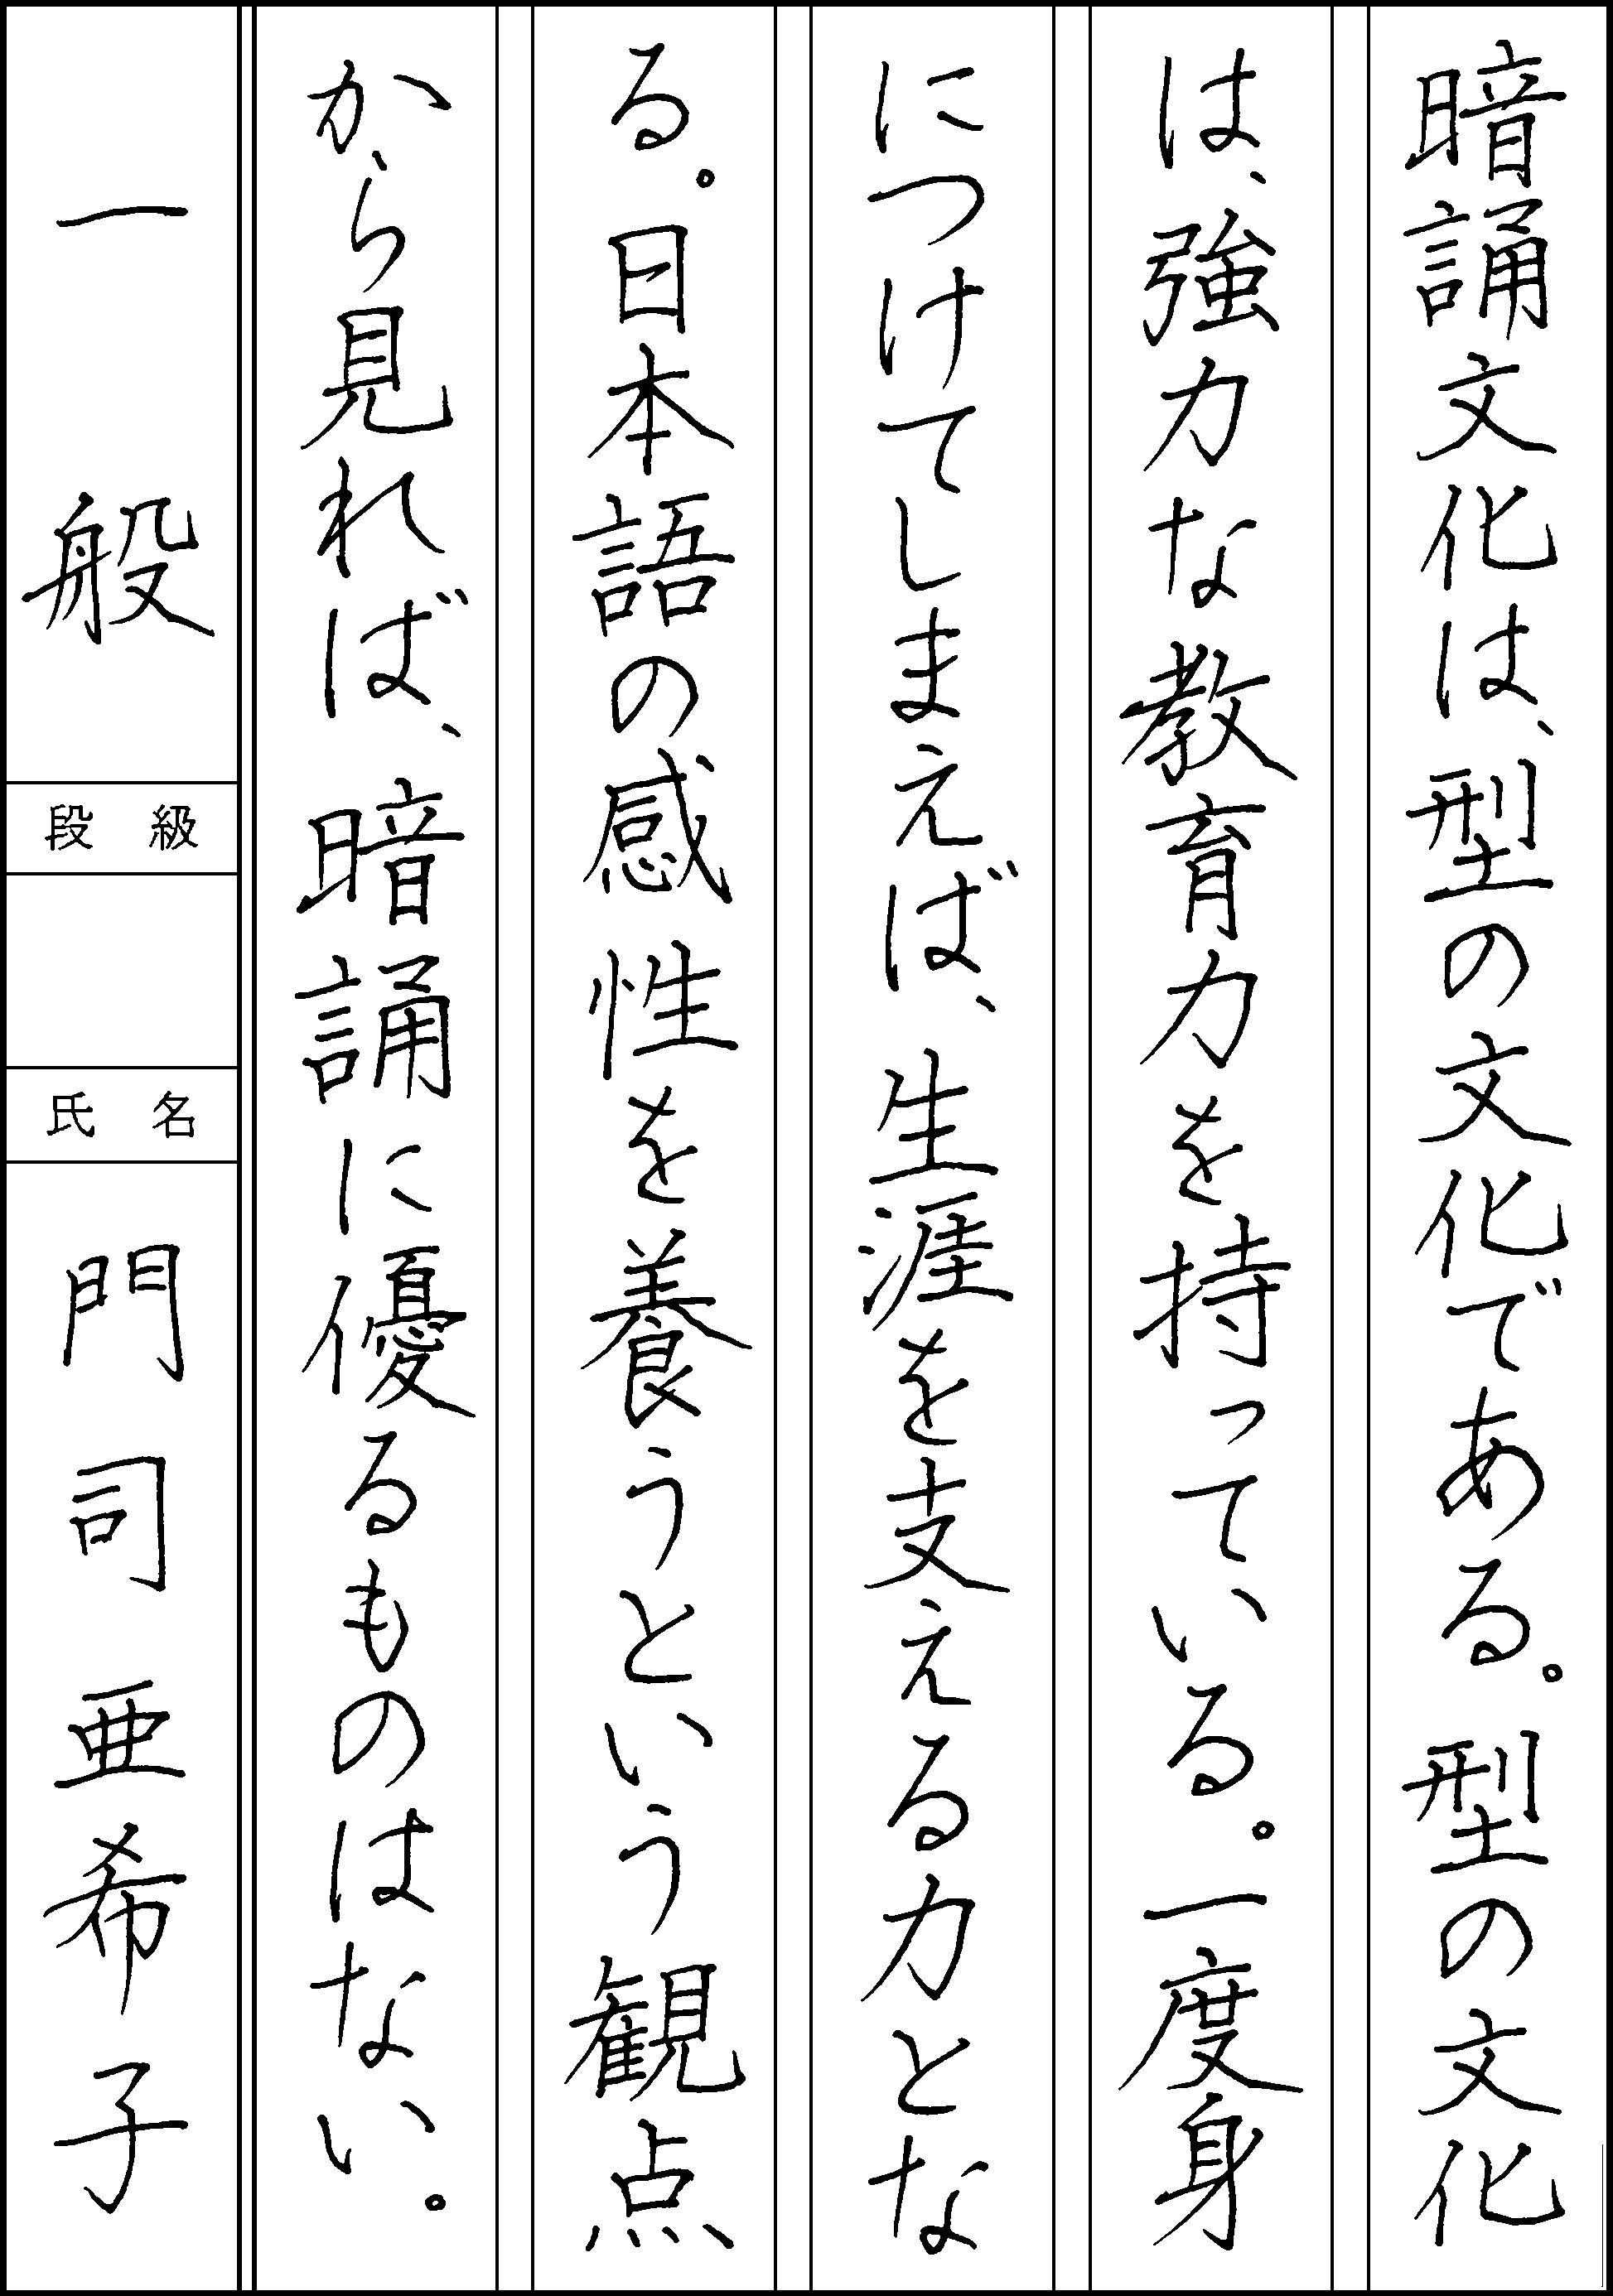 暗誦文化は、型の文化である。型の文化
は、強力な教育力を持っている。一度身
につけてしまえば、生涯を支える力とな
る。日本語の感性を養うという観点
から見れば、暗誦に優るものはない。
一般
段級
氏名
門司亜希子